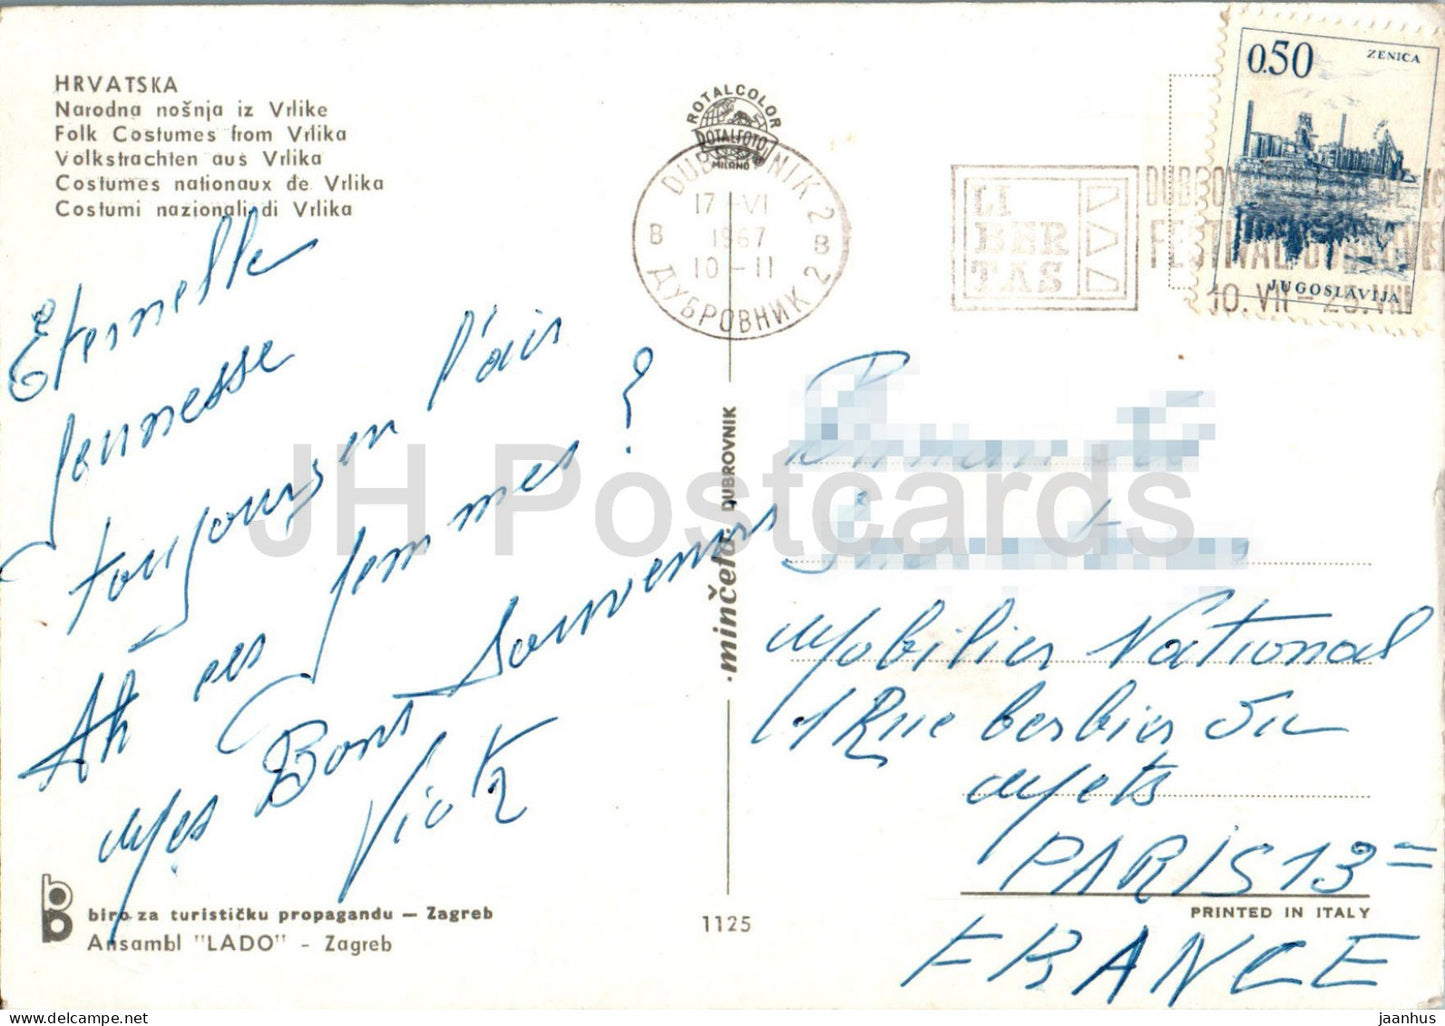 HRVATSKA
Narodna nošnja iz Vrlike
Folk Costumes from Vrlika
Volkstrachten aus Vrlika
Costumes nationaux de Vrlika
Costumi nazionali di Vrlika
Eternelle
Jeunesse
toujours en l'air
Ah ces femmes ?
Mes Bons Souvenirs
biro za turističku propagandu — Zagreb
Ansambl "LADO" - Zagreb
ROTALCOLOR
ROTALFOTO
MILANO
DUBROVNIK 2
B B
17 -VI
1967
10-11
ДУБРОВНИК 2
LI
BER
TAS
10. VII -
0.50
ZENICA
JUGOSLAVIJA
minčeta DUBROVNIK
1125
Mobilier National
1 Rue berbier du
Mets
PARIS 13 =
FRANCE
PRINTED IN ITALY
JH Postcards
jaanhus - delcampe.net